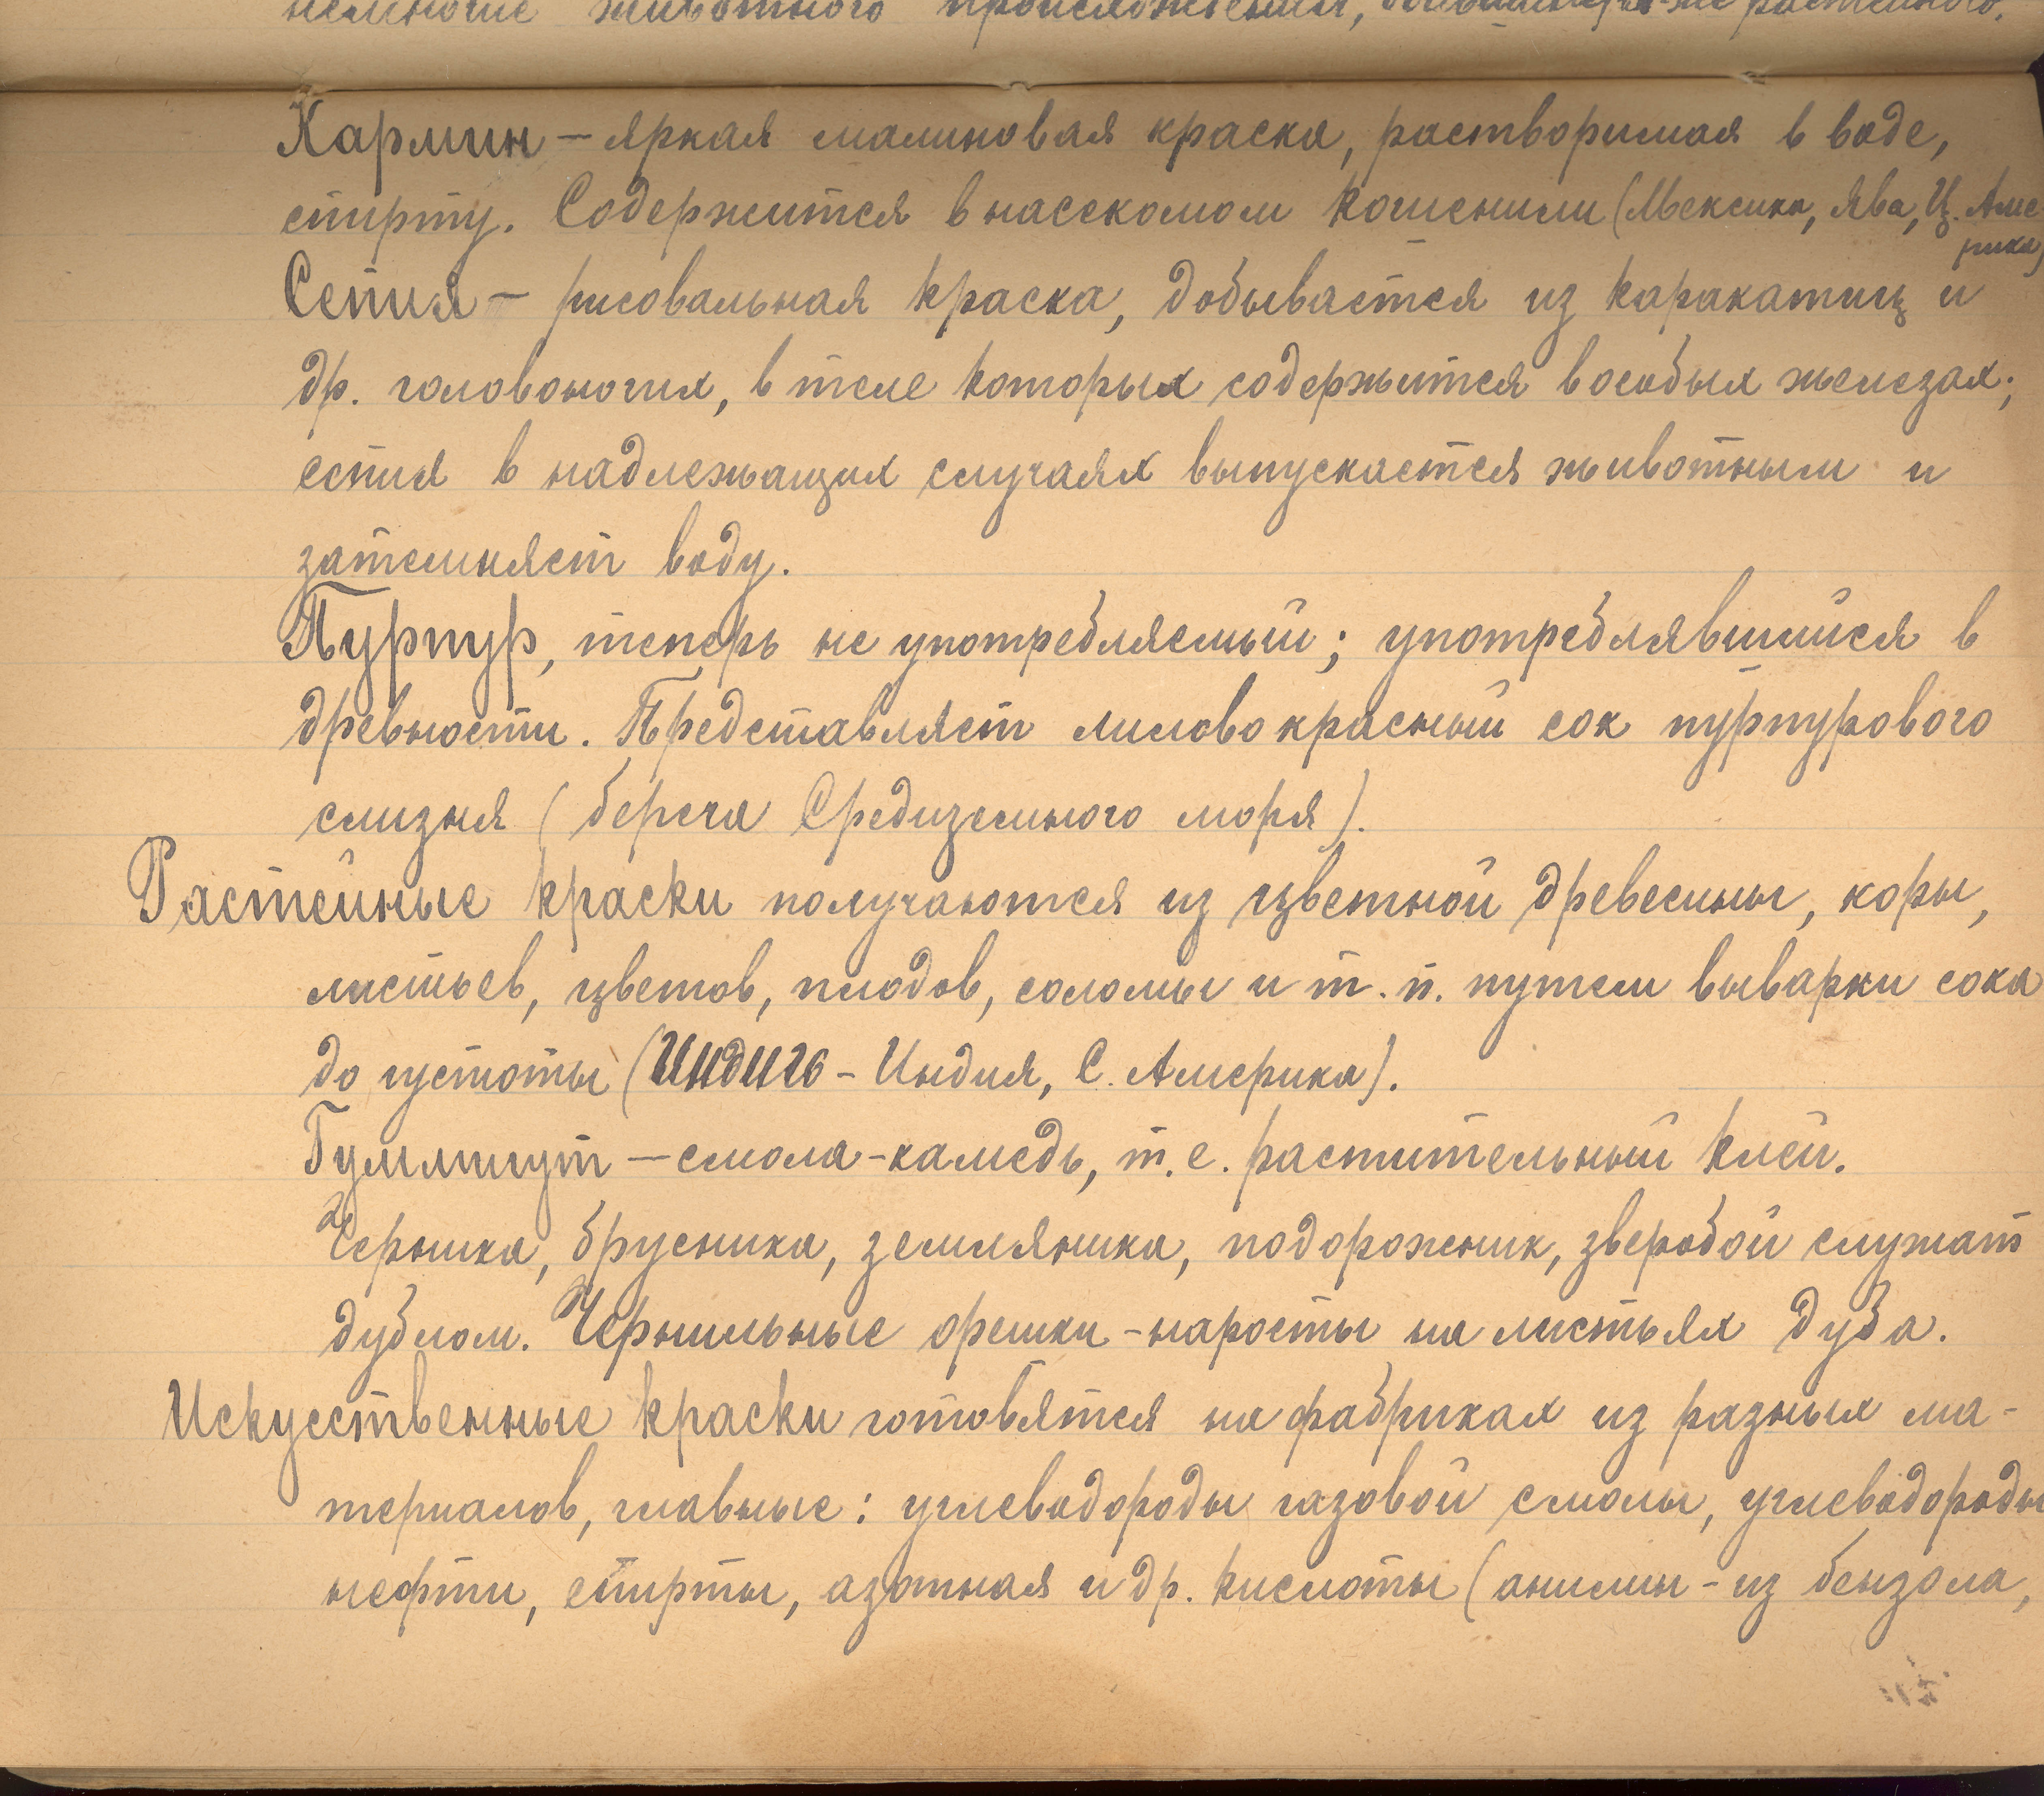 немногие животного происхождения, растением.
Кармин – яркая малиновая краска, растворимая в воде,
спирту. Содержится в насекомом кошенили (Мексика, Ява, Ц. Аме
рика)
Сепия – рисовальная краска, добывается из каракатиц и
др. головоногих, в теле которых содержится в особых железах;
сепия в надлежащих случаях выпускается животным и
затемняет воду.
Пурпур, теперь не употребляемый; употреблявшийся в
древности. Представляет лиловокрасный сок пурпурового
слизня (берега Средиземного моря).
Растейные краски получаются из цветной древесины, коры,
листьев, цветов, плодов, соломы и т. п. путем выварки сока
до густоты (Индиго – Индия, С. Америка).
Гуммигут – смола-камедь, т. е. растительный клей.
Черника, брусника, земляника, подорожник, зверобой служат
дублом. Чернильные орешки – наросты на листьях дуба.
Искусственные краски готовятся на фабриках из разных ма-
териалов, главные: углеводороды газовой смолы, углеводороды
нефти, спирты, азотная и др. кислоты (анилин – из бензола,